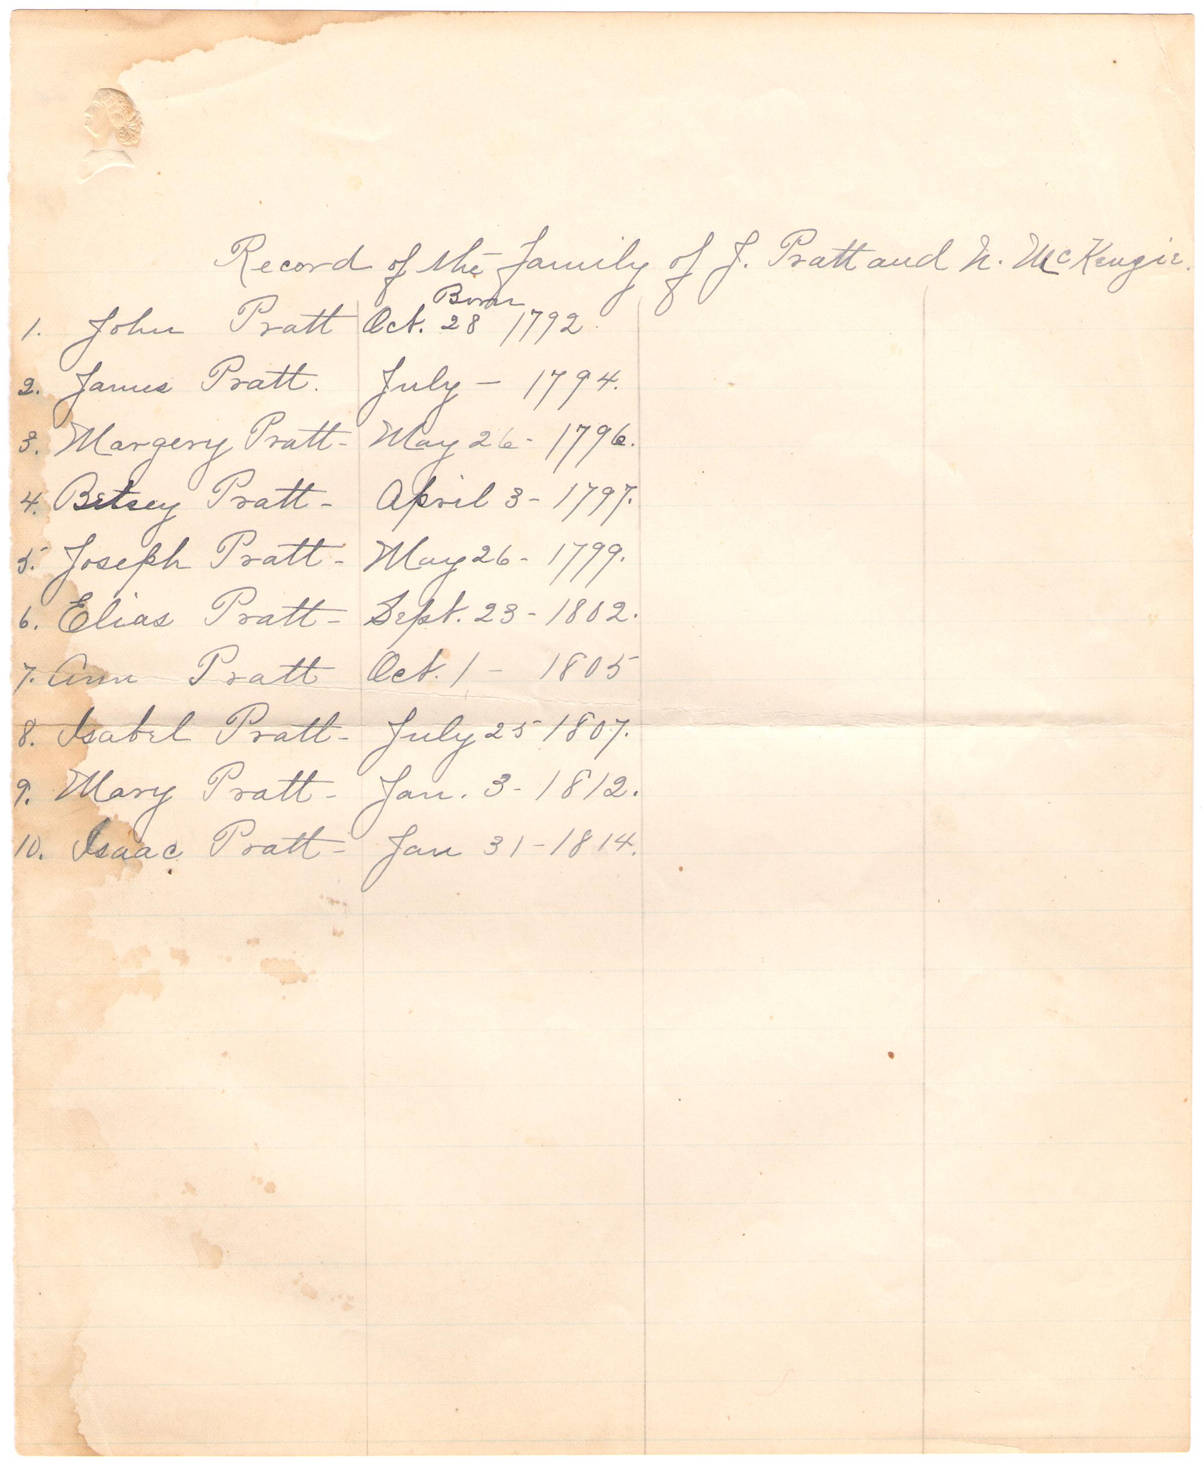 Record of the Family of J. Pratt and N. McKenzie.
Born
1. John Pratt Oct. 28 1792
2. James Pratt. July - 1794.
3. Margery Pratt - May 26 - 1796.
4. Betsey Pratt - April 3 - 1797.
5. Joseph Pratt - May 26 - 1799.
6. Elias Pratt - Sept. 23 - 1802.
7. Ann Pratt Oct. 1 - 1805
8. Isabel Pratt - July 25 1807.
9. Mary Pratt - Jan. 3 - 1812.
10. Isaac Pratt - Jan 31 - 1814.